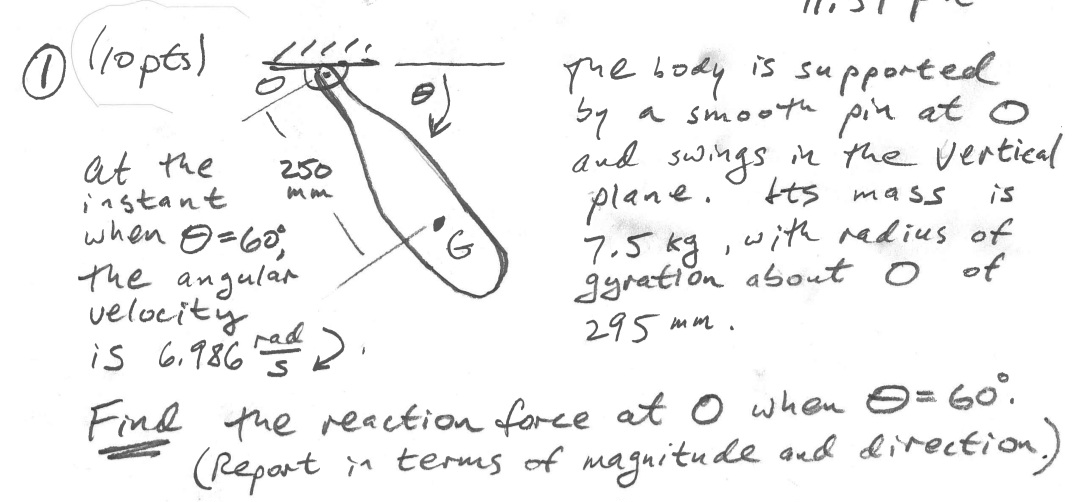 ① (10 pts)
O
θ
250
mm
G
at the
instant
when θ=60°,
the angular
velocity
is 6.986 rad/s
The body is supported
by a smooth pin at O
and swings in the vertical
plane. Its mass is
7.5 kg, with radius of
gyration about O of
295 mm.
Find the reaction force at O when θ=60°.
(Report in terms of magnitude and direction.)